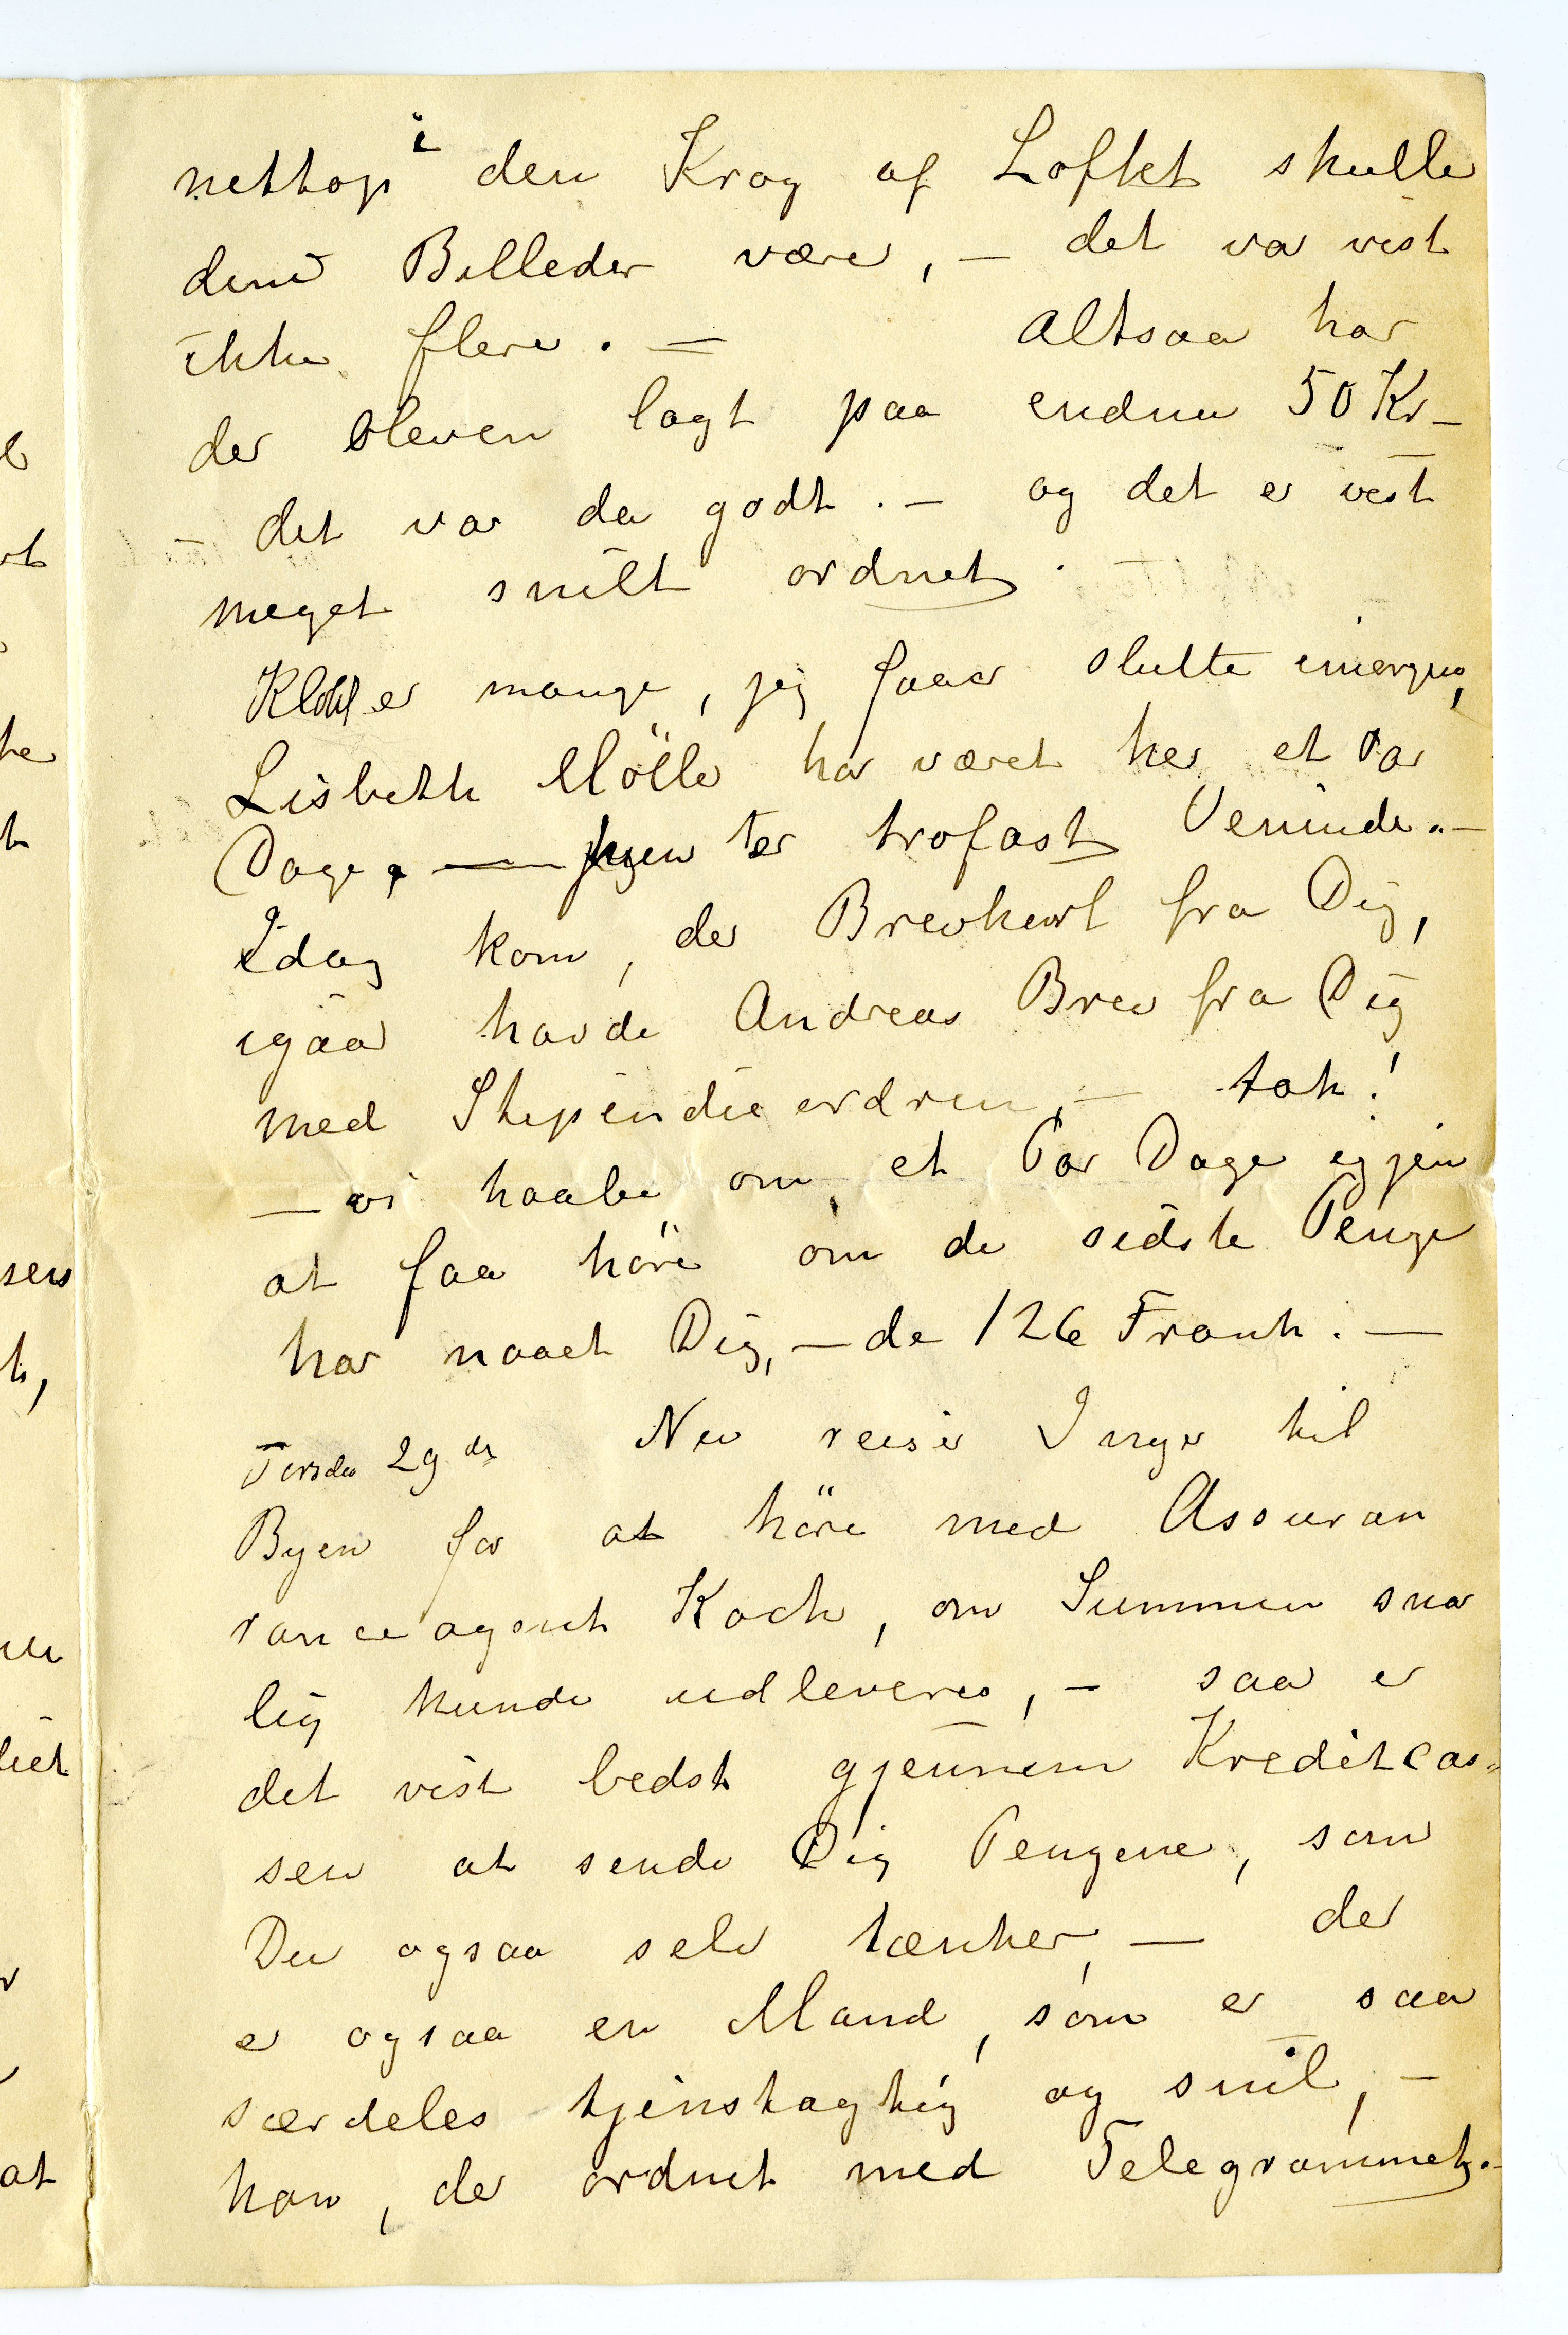 nettop i den Krog af Loftet skulle
dine Billeder være, – det var vist
ikke flere. – Altsaa har
der bleven lagt paa endnu 50 Kr –
– det var da godt. – og det er vist
meget snilt ordnet. –
Kl er mange, jeg faar slutte imorgen,
Lisbeth Mölle har været her et Par
Dage, – er trofast Veninde. –
Idag kom, der Brevkort fra Dig,
igaar havde Andreas Brev fra Dig
med Stipendieordren, – tak!
– vi haabe om et Par Dage igjen
at faa höre om de sidste Penge
har naaet Dig, – de 126 Frank. –
Torsdag 29de Nu reiser Inger til
Byen for at höre med Assuran
ranceagent Koch, om Summen snar
lig kunde udleveres, – saa er
det vist bedst gjennem Kreditcas-
sen at sende Dig Pengene, som
Du ogsaa selv tænker, – der
er ogsaa en Mand, som er saa
særdeles tjenstagtig og snil, –
han, der ordnet med Telegrammet. –
l
sen
at